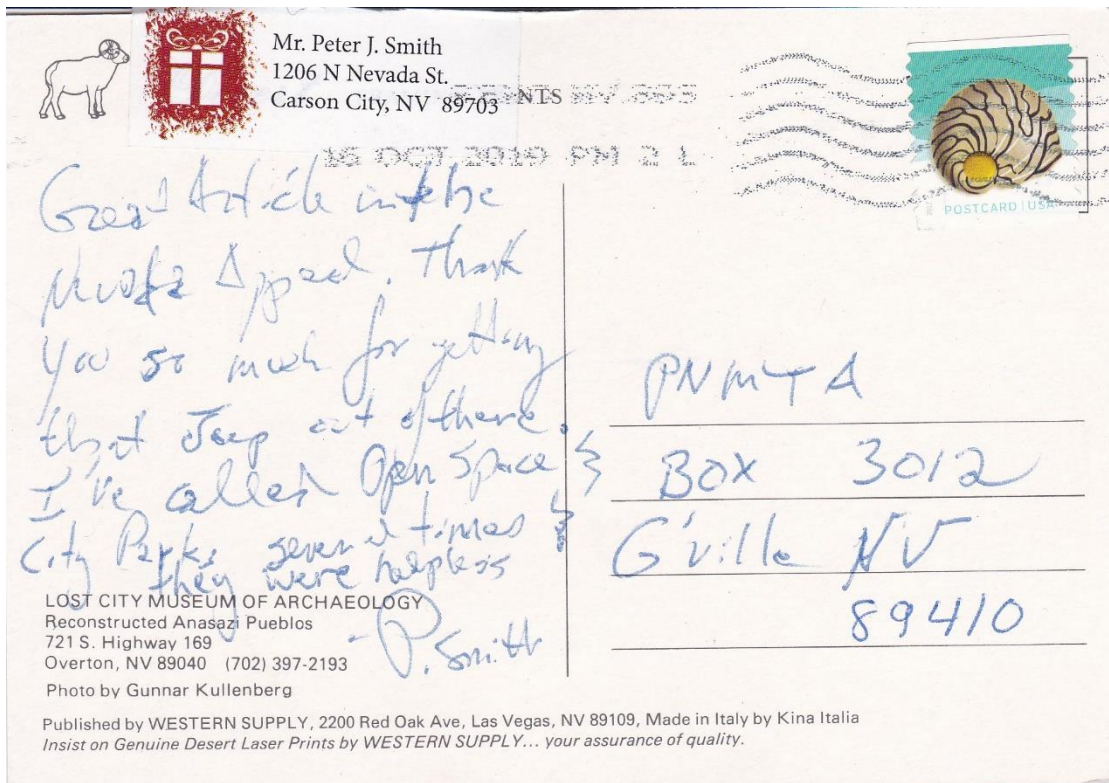 Mr. Peter J. Smith
1206 N Nevada St.
Carson City, NV 89703
NTS NV 895
16 OCT 2019 PM 2 L
POSTCARD | USA
Great Article in the
Nevada Appeal. Thank
You so much for getting
that Jeep out of there.
I've called Open Space &
City Parks several times &
they were helpless
P. Smith
PNMTA
BOX 3012
G'ville NV
89410
LOST CITY MUSEUM OF ARCHAEOLOGY
Reconstructed Anasazi Pueblos
721 S. Highway 169
Overton, NV 89040 (702) 397-2193
Photo by Gunnar Kullenberg
Published by WESTERN SUPPLY, 2200 Red Oak Ave, Las Vegas, NV 89109, Made in Italy by Kina Italia
Insist on Genuine Desert Laser Prints by WESTERN SUPPLY... your assurance of quality.